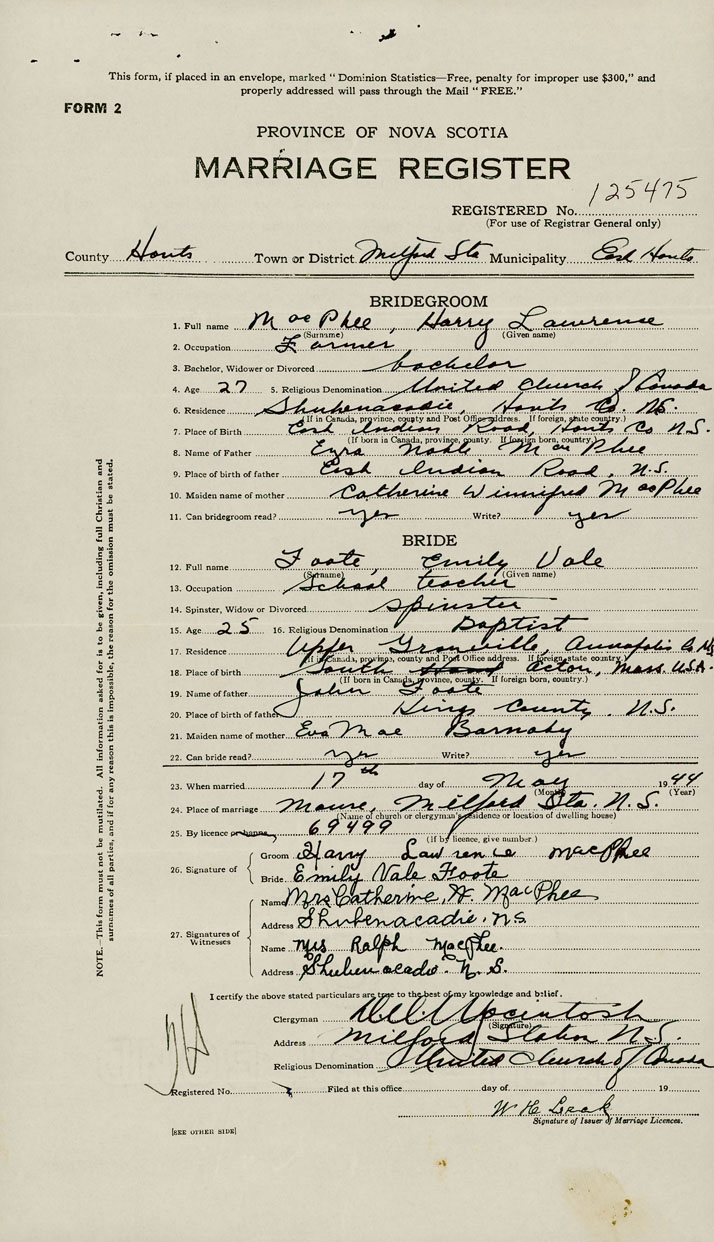 This form, if placed in an envelope, marked "Dominion Statistics—Free, penalty for improper use $300," and
properly addressed will pass through the Mail "FREE."
FORM 2
PROVINCE OF NOVA SCOTIA
MARRIAGE REGISTER
REGISTERED No. 125475
(For use of Registrar General only)
County Hants Town or District Milford Sta Municipality East Hants
BRIDEGROOM
1. Full name MacPhee, Harry Lawrence
(Surname) (Given name)
2. Occupation Farmer
3. Bachelor, Widower or Divorced bachelor
4. Age 27 5. Religious Denomination United Church of Canada
6. Residence Shubenacadie, Hants Co. N.S.
(If in Canada, province, county and Post Office address. If foreign, state country.)
7. Place of Birth East Indian Road, Hants Co N.S.
(If born in Canada, province, county. If foreign born, country)
8. Name of Father Ezra Noble MacPhee
9. Place of birth of father East Indian Road, N.S.
10. Maiden name of mother Catherine Winnifred MacPhee
11. Can bridegroom read? yes Write? yes
BRIDE
12. Full name Foote, Emily Vale
(Surname) (Given name)
13. Occupation School teacher
14. Spinster, Widow or Divorced spinster
15. Age 25 16. Religious Denomination Baptist
17. Residence Upper Granville, Annapolis Co NS
(If in Canada, province, county and Post Office address. If foreign, state country)
18. Place of birth South Acton, Mass. U.S.A.
(If born in Canada, province, county. If foreign born, country.)
19. Name of father John Foote
20. Place of birth of father Kings County. N.S.
21. Maiden name of mother Eva Mae Barnaby
22. Can bride read? yes Write? yes
23. When married 17th day of May 1944
(Month) (Year)
24. Place of marriage Manse, Milford Sta. N.S.
(Name of church or clergyman's residence or location of dwelling house)
25. By licence or banns 69499
(If by licence, give number.)
26. Signature of
Groom Harry Lawrence MacPhee
Bride Emily Vale Foote
27. Signatures of Witnesses
Name Mrs Catherine W. MacPhee
Address Shubenacadie. N.S.
Name Mrs Ralph MacPhee.
Address Shubenacadie. N.S.
I certify the above stated particulars are true to the best of my knowledge and belief.
Clergyman
(Signature)
Address Milford Station N.S.
Religious Denomination United Church of Canada
Registered No. Filed at this office day of 19
W H Leak
Signature of Issuer of Marriage Licences.
[SEE OTHER SIDE]
NOTE.—This form must not be mutilated. All information asked for is to be given, including full Christian and
surnames of all parties, and if for any reason this is impossible, the reason for the omission must be stated.